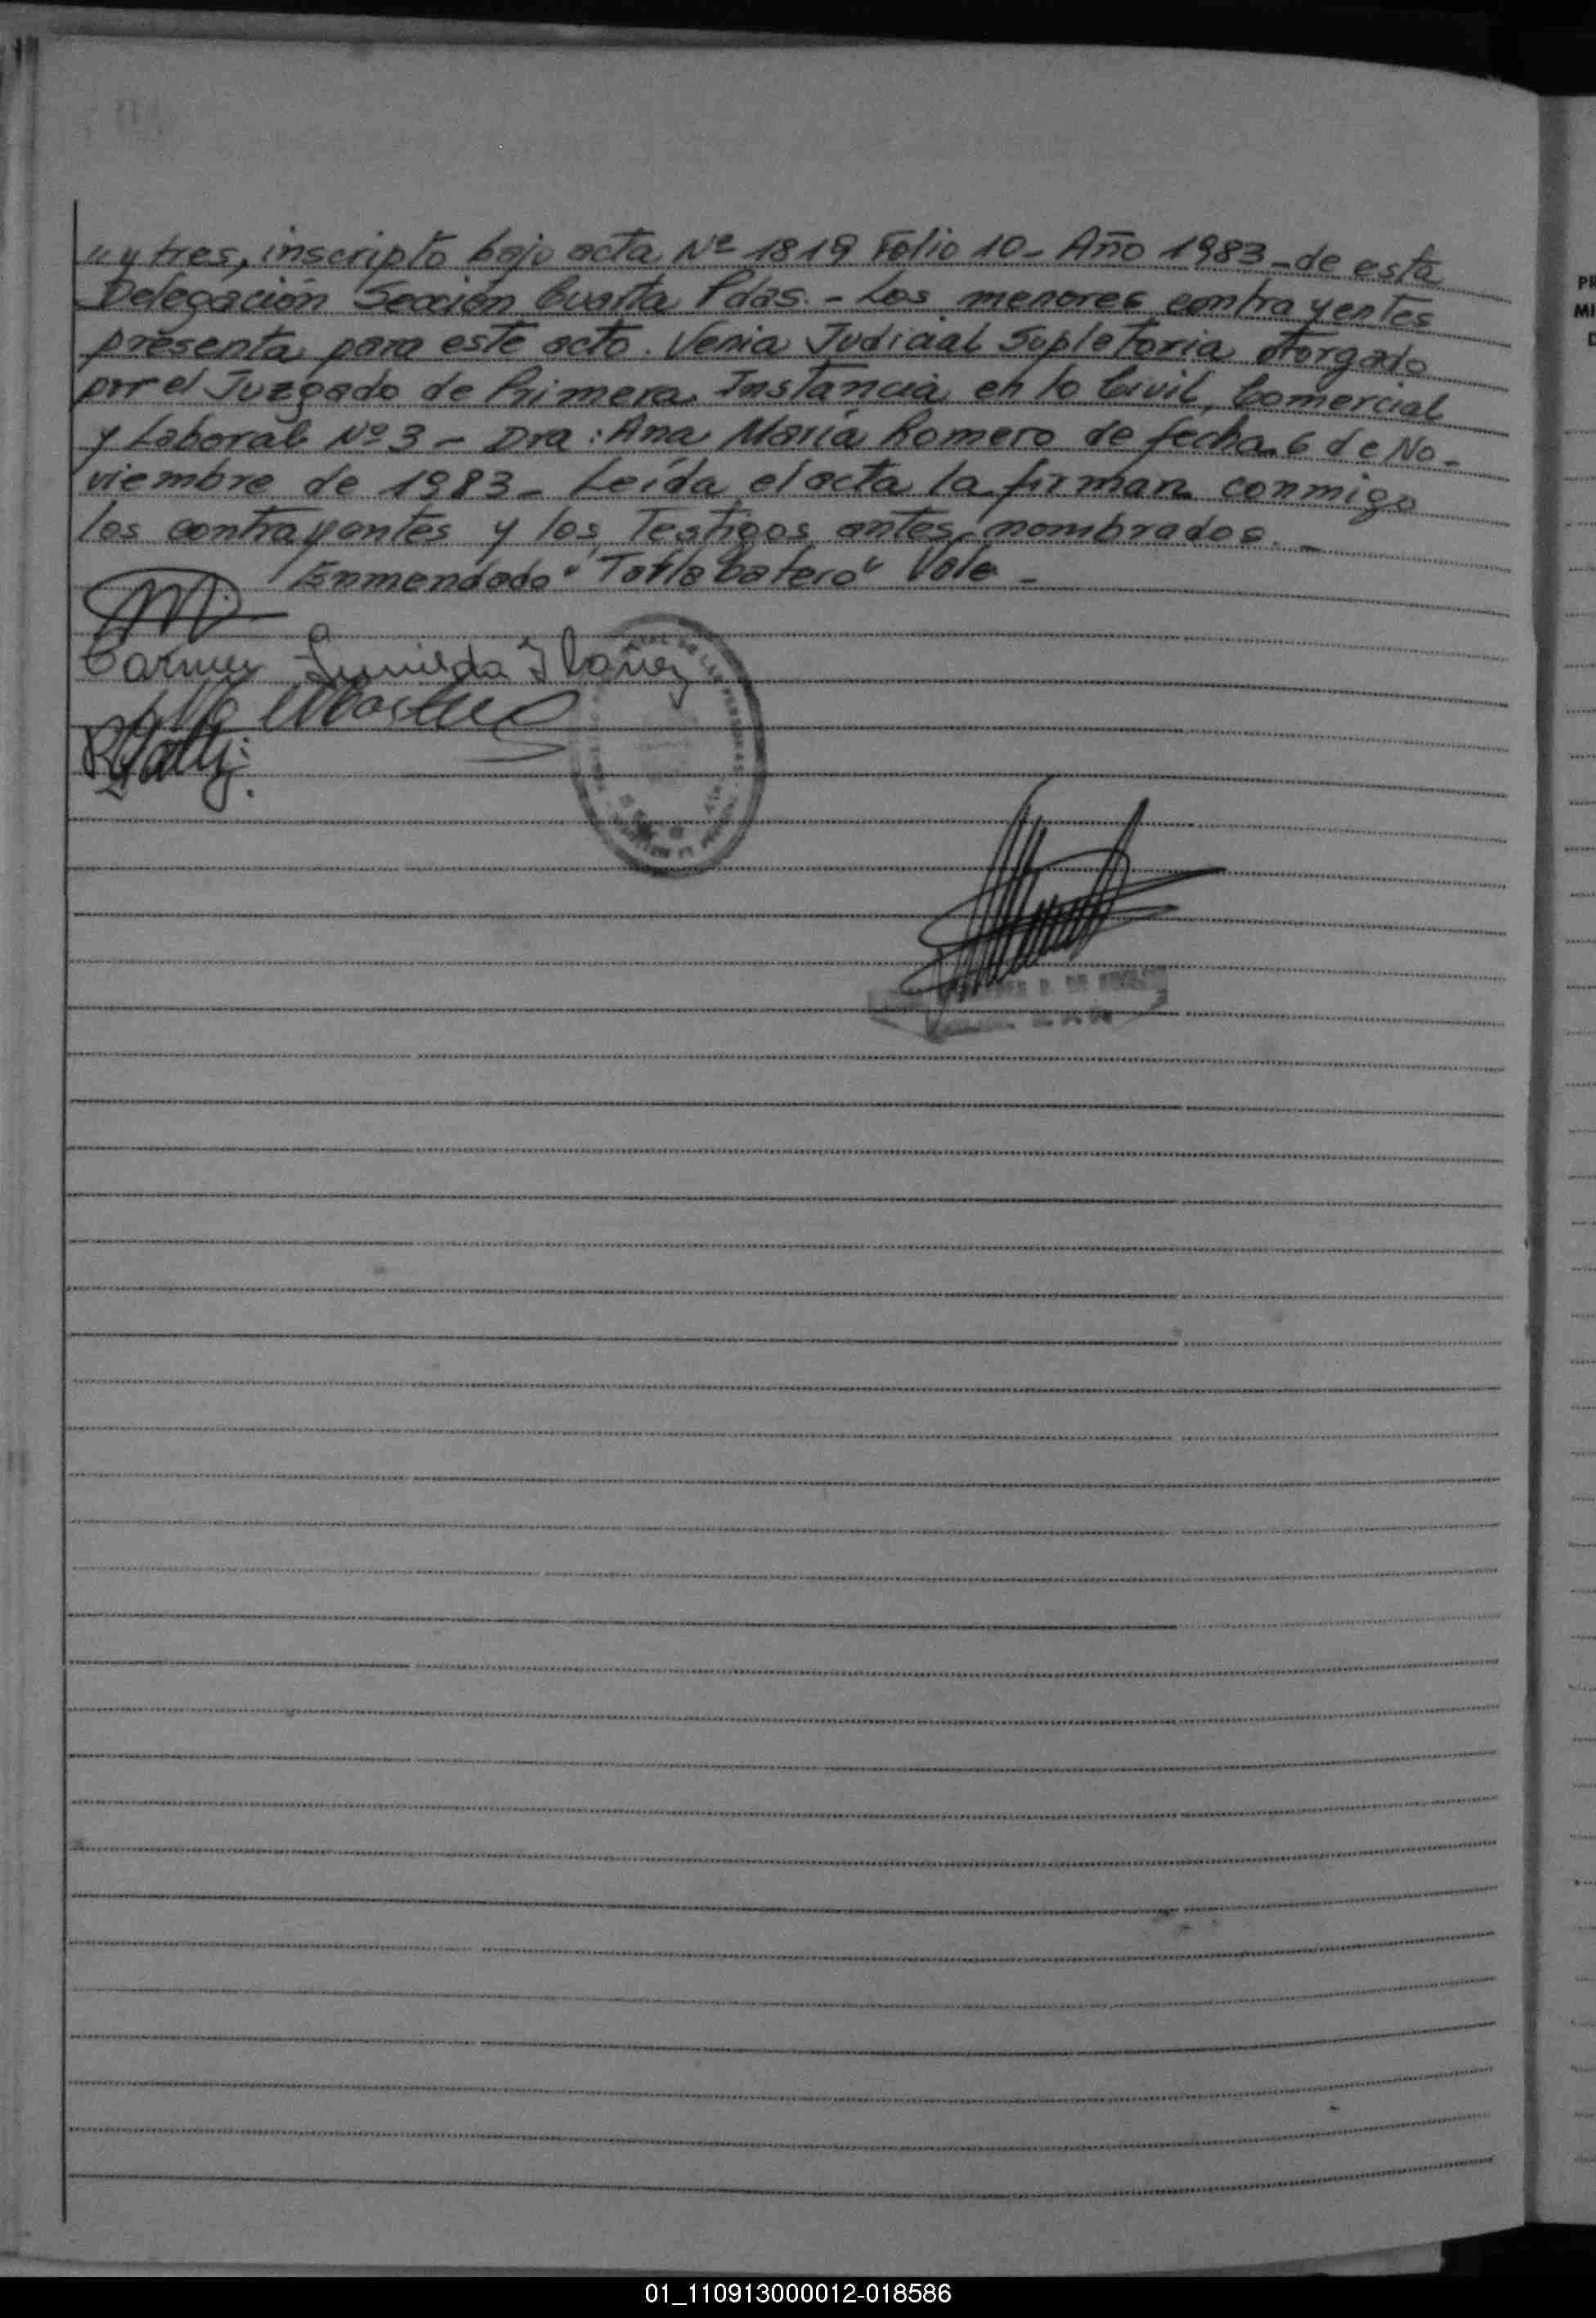 " y tres, inscripto bajo acta Nº 1819 Folio 10 - Año 1983 - de esta
Delegación Sección Cuarta Pdas. - Los menores contrayentes
presenta para este acto. Venia Judicial Supletoria otorgado
por el Juzgado de Primera Instancia en lo Civil, Comercial
y Laboral Nº 3 - Dra: Ana María Romero de fecha 6 de No-
viembre de 1983 - Leída el acta la firman conmigo
los contrayentes y los Testigos antes nombrados. -
Enmendado " " Vale -
Carmen Ibañez
PR
MI
D
01_110913000012-018586